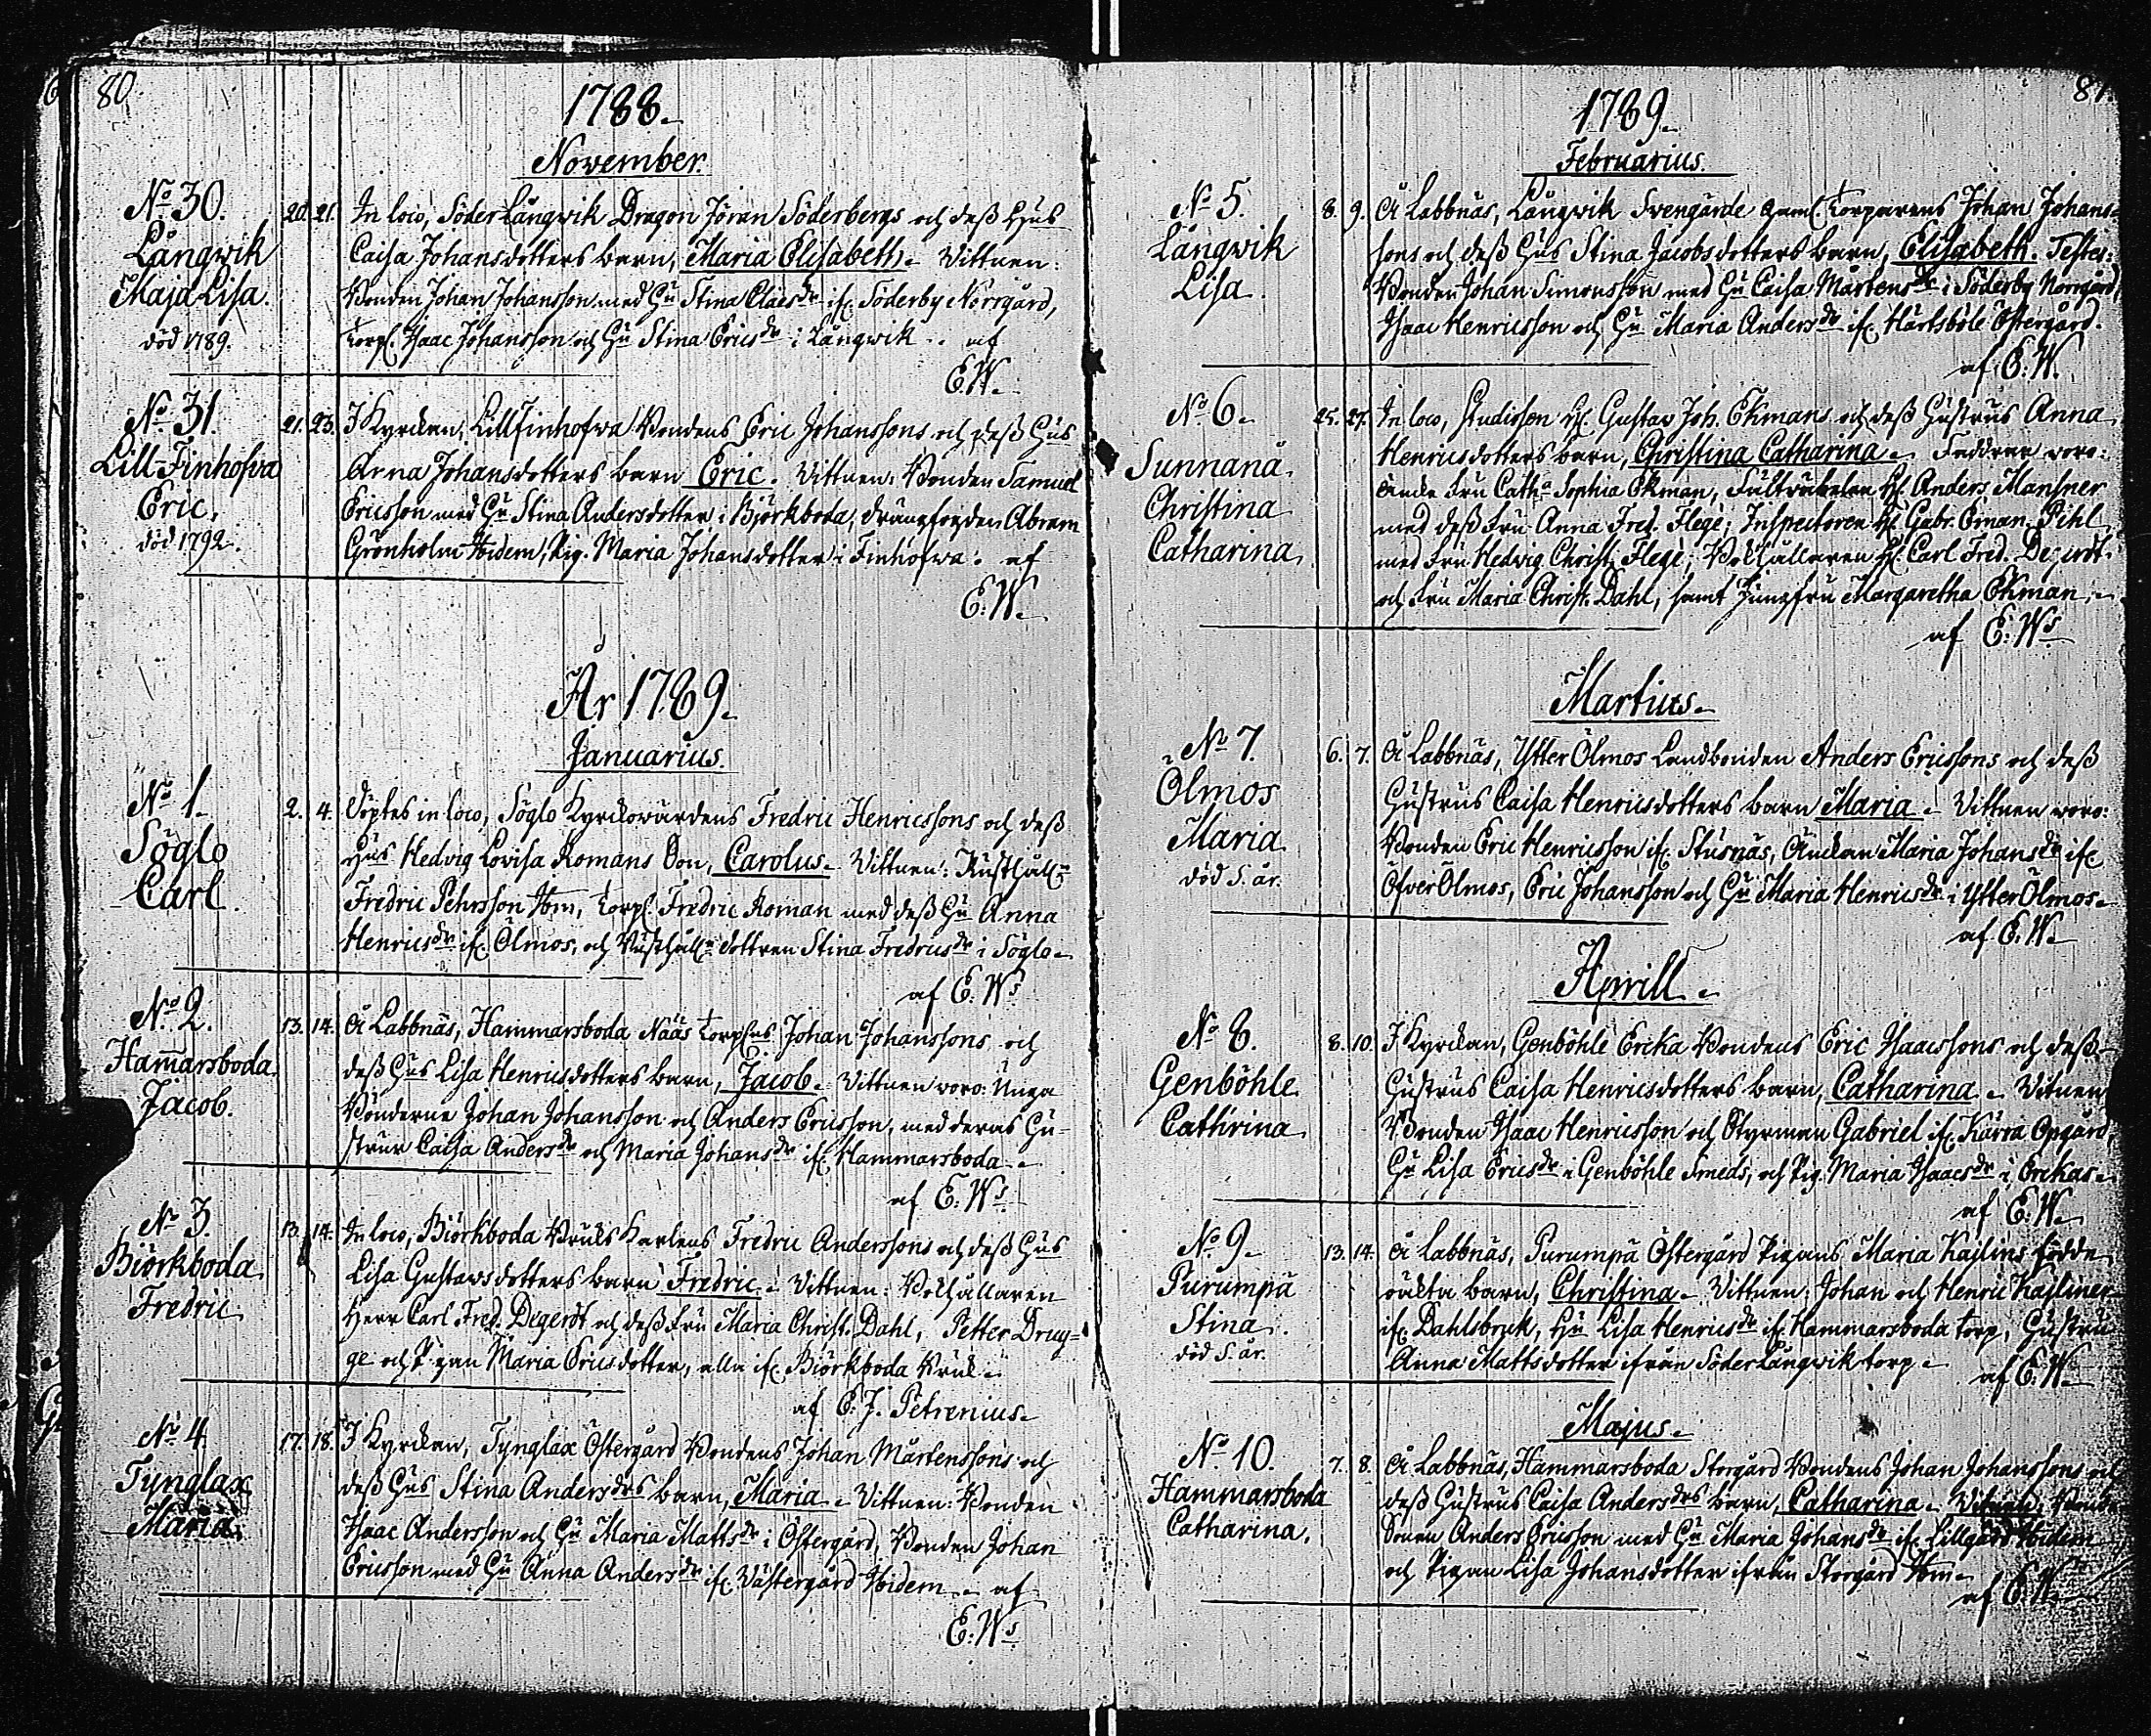 80.
1788.
November.
No 30.
Långwik
Maja Lisa.
död 1789.
20. 21. In loco, Söder Långwik Dragon Jöran Söderbergs och dess Hus
Caisa Johansdotters barn, Maria Elisabeth. Vittnen:
Bonden Johan Johansson med Hu Stina Claesdr if. Söderby Norrgård,
Torp. Isaac Johansson och Hu Stina Ericsdr i Långwik. af
E.W.
No 31.
Lill-Finhofva
Eric.
död 1792.
21. 23. I Kyrckan, Lill Finhofwa Bondens Eric Johanssons och dess Hus
Anna Johansdotters barn Eric. Vittnen: Bonden Samuel
Ericsson med Hu Stina Andersdotter i Björkboda, Abram
Grönholm Ibidem, Pig. Maria Johansdotter i Finhofwa. af
E.W.
År 1789.
Januarius.
No 1.
Söglo
Carl.
2. 4. Döptes in loco, Söglo Kyrckowärdens Fredric Henricssons och dess
Hus Hedvig Lovisa Romans Son, Carolus. Vittnen: Rusthåll.
Fredric Pehrsson Ibm, Torp. Fredric Roman med dess Hu Anna
Henricsdr if. Ölmos, och Rusthåll. dottren Stina Fredricsdr i Söglo.
af E. Ws.
No 2.
Hammarsboda
Jacob.
13. 14. Å Labbnäs, Hammarsboda Nääs Torp.us Johan Johanssons och
dess Hus Lisa Henricsdotters barn, Jacob. Vittnen woro: Unga
Bönderne Johan Johansson och Anders Ericsson, med deras Hu-
strur Caisa Andersdr och Maria Johansdr if. Hammarsboda.
af E. Ws.
No 3.
Biörkboda
Fredric
13. 14. In loco, Biörkboda Bruks Karlens Fredric Anderssons och dess Hus
Lisa Gustawsdotters barn Fredric. Vittnen: Bokhållaren
Herr Carl Fred. Degerdt och dess Fru Maria Christ. Dahl, Petter Druy=
ge och Pigan Maria Ericsdotter, alla if. Biörkboda Bruk.
af E. J. Petrenius.
No 4.
Tynglax
Maria.
17. 18. I Kyrckan, Tynglax Östergård Bondens Johan Mårtenssons och
dess Hus Stina Andersdrs barn, Maria. Vittnen: Bonden
Isaac Andersson och Hu Maria Mattsdr i Östergård, Bonden Johan
Ericsson med Hu Anna Andersdr if. Västergård Ibidem. af
E. Ws.
81.
1789.
Februarius.
No 5.
Långwik
Lisa.
8. 9. Å Labbnäs, Långwik Svengärde gaml. Torparens Johan Johans=
sons och dess Hus Stina Jacobsdotters barn, Elisabeth. Testes:
Bonden Johan Simonsson med Hu Caisa Mårtensdr i Söderby Norrgård,
Isaac Henricsson och Hu Maria Andersdr if. Härtsböle Östergård.
af E. W.
No 6.
Sunnanå
Christina
Catharina
25. 27. In loco, H. Gustav Joh. Ekmans och dess Hustrus Anna
Henricsdotters barn, Christina Catharina. Faddrar woro:
Fru Cath. Sophia Ekman, Fältwäbelen H. Anders Mansner
med dess Fru Anna Fred. Flege; Inspectoren H. Gabr. Eman. Pihl
med Fru Hedvig Christ. Flege; Bokhållaren H. Carl Fred. Degerdt
och Fru Maria Christ. Dahl, samt Jungfru Margaretha Ekman.
af E: Ws.
Martius.
No 7.
Ölmos
Maria
död S. år.
6. 7. Å Labbnäs, Ytter Ölmos Landbonden Anders Ericssons och dess
Hustrus Caisa Henricsdotters barn Maria. Vittnen woro:
Bonden Eric Henricsson if. Stusnäs, Änckan Maria Johansdr if.
Öfver Ölmos, Eric Johansson och Hu Maria Henricsdr i Ytter Ölmos.
af E. W.
Aprill.
No 8.
Genböhle
Cathrina
8. 10. I Kyrckan, Genböhle Ercka Bondens Eric Isaacssons och dess
Hustrus Caisa Henricsdotters barn, Catharina. Vitnen
Bonden Isaac Henricsson och Styrman Gabriel if. Kärra Opgård,
Hu Lisa Ericsdr i Genböhle Smeds, och Pig. Maria Isaacsdr i Erckas.
af E: W.
No 9.
Purumpä
Stina.
död S. år.
13. 14. Å Labbnäs, Purumpä Östergård Pigans Maria Kajlins födde
oäkta barn, Christina. Vittnen: Johan och Henric Kajliner
if. Dahlsbruk, Hu Lisa Henricsdr if. Hammarsboda torp, Hustru
Anna Mattsdotter ifrån Söder Långwik torp.
af E. W.
Majus.
No 10.
Hammarsboda
Catharina.
7. 8. Å Labbnäs, Hammarsboda Storgård Bondens Johan Johanssons och
dess Hustrus Caisa Andersdrs barn, Catharina. Vitnen: Bonde
Sonen Anders Ericsson med Hu Maria Johansdr if. Lillgård Ibidem
och Pigan Lisa Johansdotter ifrån Storgård Ibm.
af E. W.